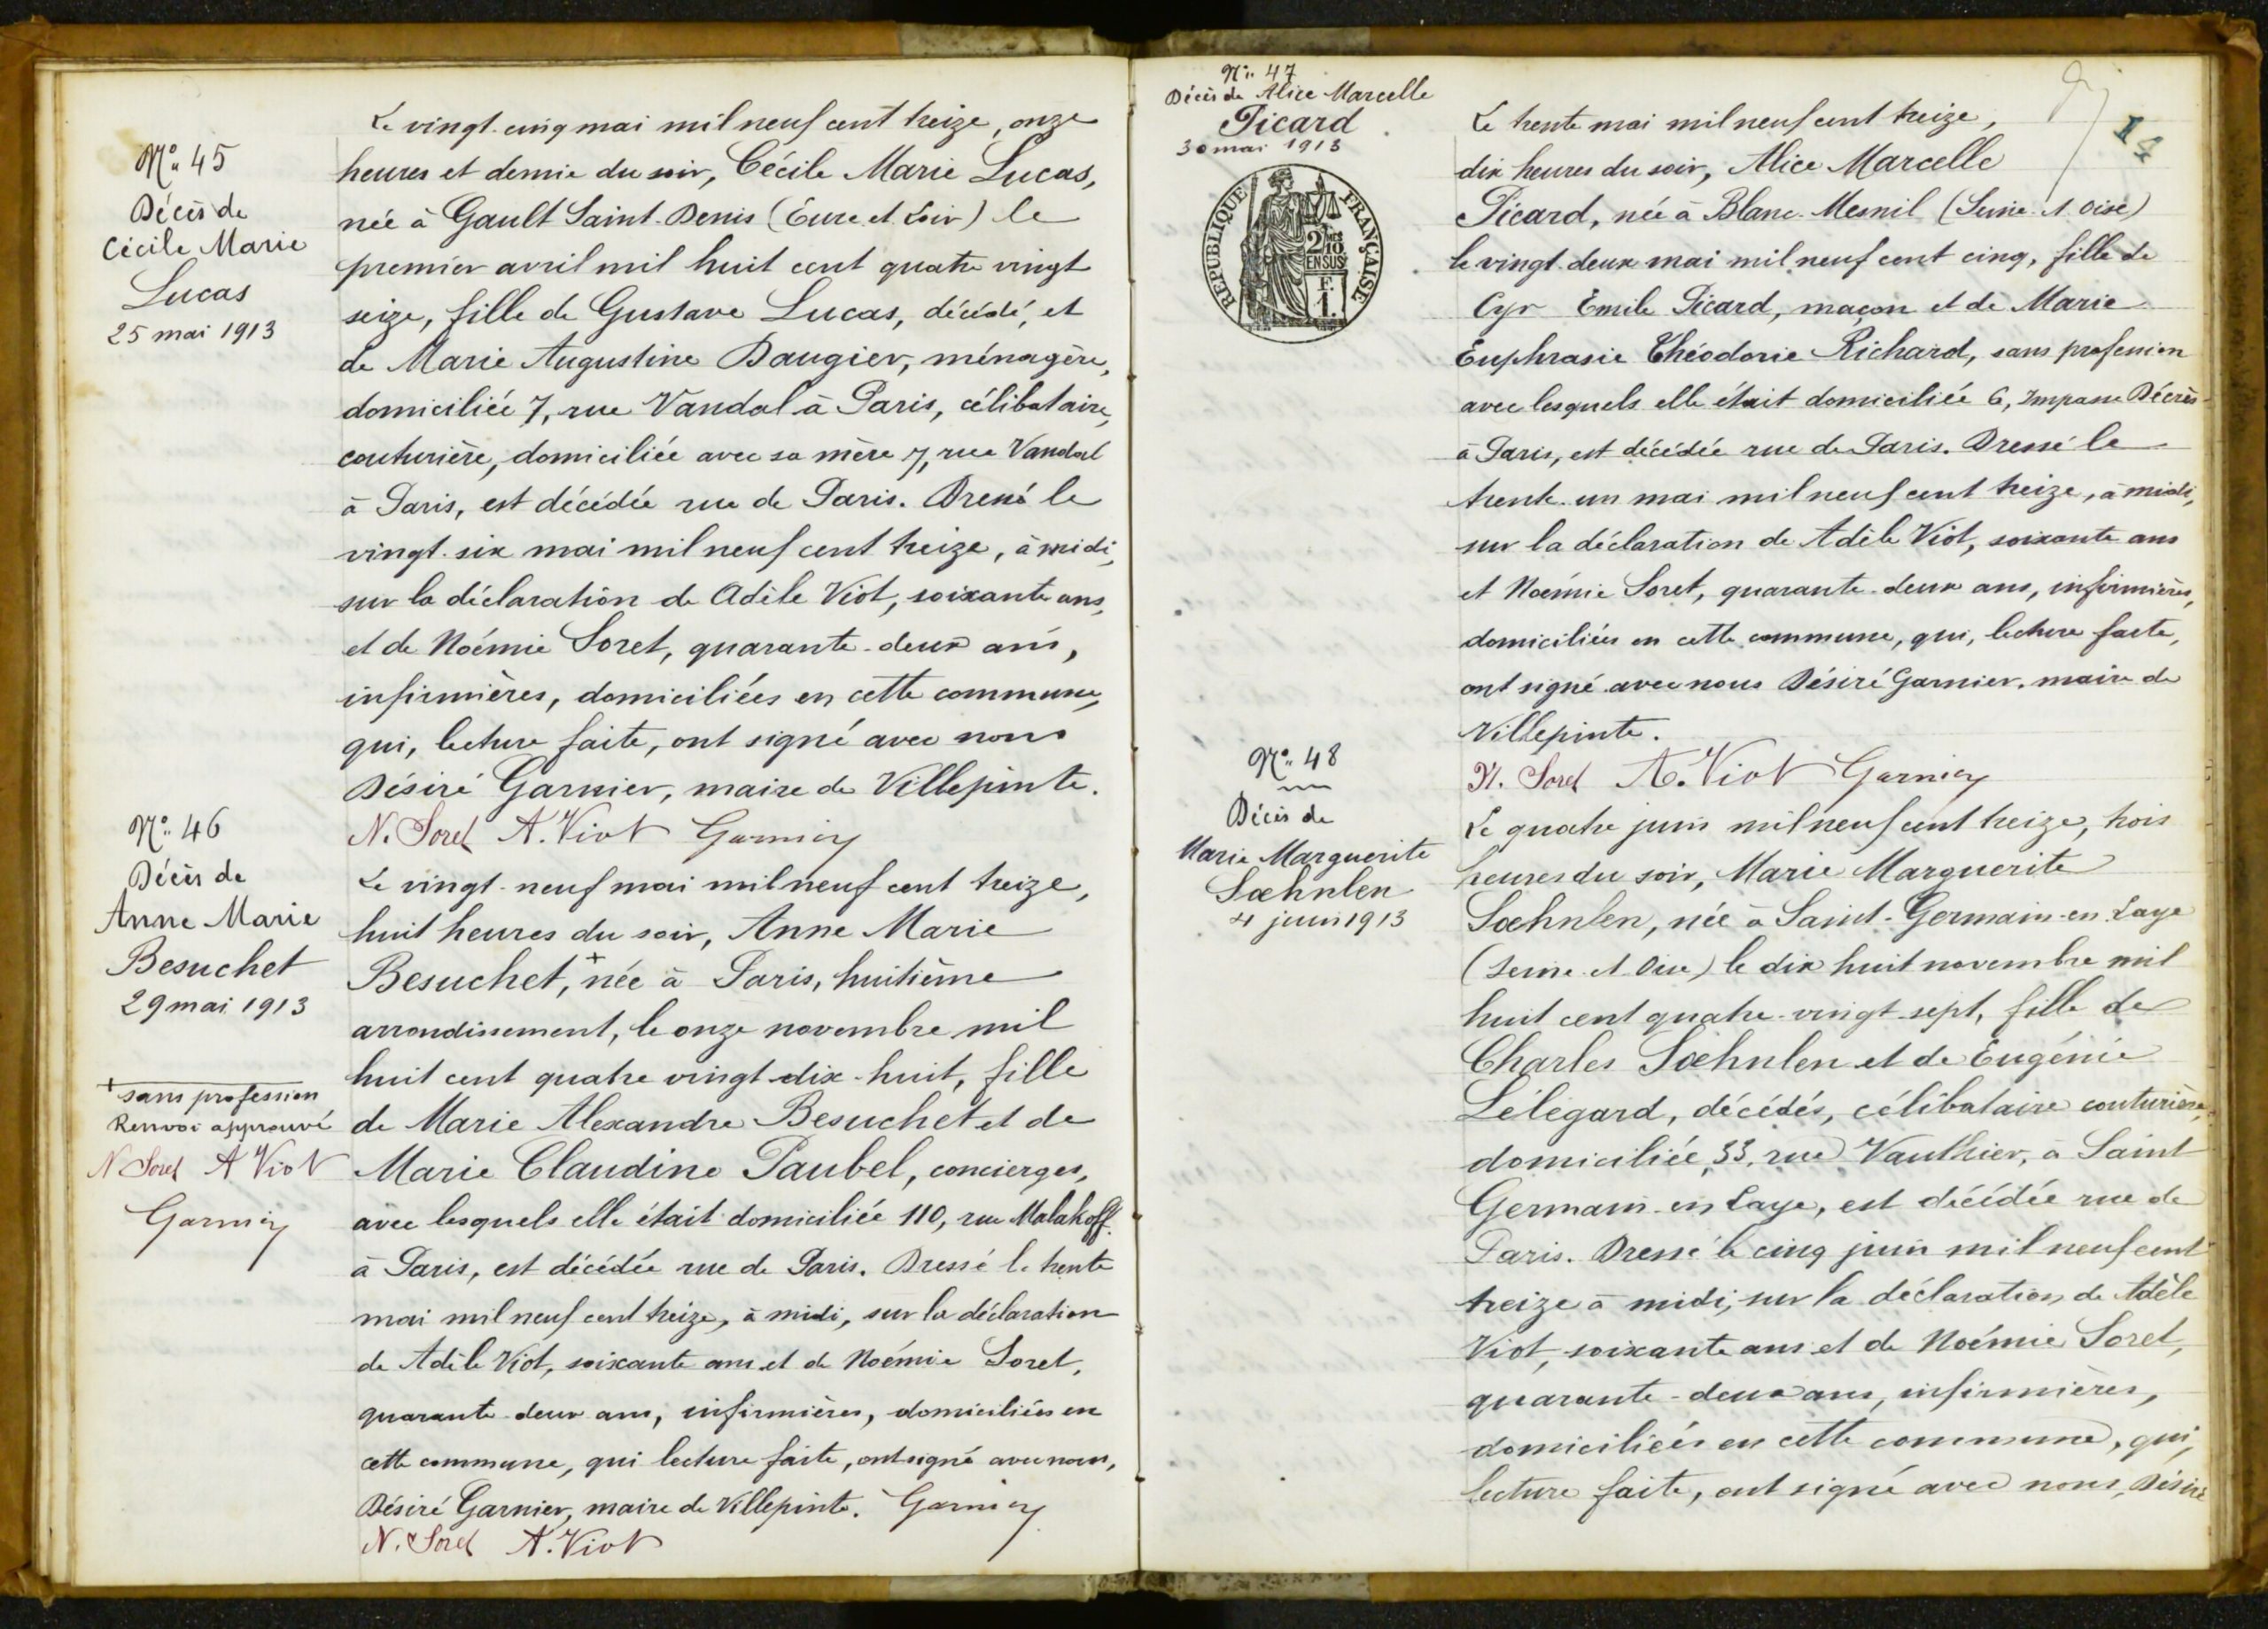 N° 45
Décès de
Cécile Marie
Lucas
25 mai 1913
Le vingt-cinq mai mil neuf cent treize, onze
heures et demie du soir, Cécile Marie Lucas,
née à Gault Saint-Denis (Eure et Loir) le
premier avril mil huit cent quatre vingt
seize, fille de Gustave Lucas, décédé, et
de Marie Augustine Daugier, ménagère,
domiciliée 7, rue Vandal à Paris, célibataire,
couturière, domiciliée avec sa mère 7, rue Vandal
à Paris, est décédée rue de Paris. Dressé le
vingt-six mai mil neuf cent treize, à midi,
sur la déclaration de Adèle Viot, soixante ans,
et de Noémie Soret, quarante-deux ans,
infirmières, domiciliées en cette commune,
qui, lecture faite, ont signé avec nous
Désiré Garnier, maire de Villepinte.
N. Soret A. Viot Garnier
N° 46
Décès de
Anne Marie
Besuchet
29 mai 1913
+ sans profession
Renvoi approuvé
N Soret A Viot
Garnier
Le vingt-neuf mai mil neuf cent treize,
huit heures du soir, Anne Marie
Besuchet,+ née à Paris, huitième
arrondissement, le onze novembre mil
huit cent quatre vingt-dix-huit, fille
de Marie Alexandre Besuchet et de
Marie Claudine Paubel, concierges,
avec lesquels elle était domiciliée 110, rue Malakoff.
à Paris, est décédée rue de Paris. Dressé le trente
mai mil neuf cent treize, à midi, sur la déclaration
de Adèle Viot, soixante ans et de Noémie Soret,
quarante-deux ans, infirmières, domiciliées en
cette commune, qui lecture faite, ont signé avec nous,
Désiré Garnier, maire de Villepinte. Garnier
N. Soret A. Viot
N° 47
Décès de Alice Marcelle
Picard
30 mai 1913
RÉPUBLIQUE FRANÇAISE
2/10
EN SUS
F.
1.
14
Le trente mai mil neuf cent treize,
dix heures du soir, Alice Marcelle
Picard, née à Blanc-Mesnil (Seine et Oise)
le vingt-deux mai mil neuf cent cinq, fille de
Cyr Emile Picard, maçon et de Marie
Euphrasie Théodorie Richard, sans profession
avec lesquels elle était domiciliée 6, Impasse Décrès
à Paris, est décédée rue de Paris. Dressé le
trente-un mai mil neuf cent treize, à midi,
sur la déclaration de Adèle Viot, soixante ans
et Noémie Soret, quarante-deux ans, infirmières,
domiciliées en cette commune, qui, lecture faite,
ont signé avec nous Désiré Garnier, maire de
Villepinte.
N. Soret A. Viot Garnier
N° 48
Décès de
Marie Marguerite
Sœhnlen
4 juin 1913
Le quatre juin mil neuf cent treize, trois
heures du soir, Marie Marguerite
Sœhnlen, née à Saint-Germain-en-Laye
(Seine et Oise) le dix huit novembre mil
huit cent quatre-vingt-sept, fille de
Charles Sœhnlen et de Eugénie
Lélégard, décédés, célibataire couturière,
domiciliée, 33, rue Vauthier, à Saint
Germain-en Laye, est décédée rue de
Paris. Dressé le cinq juin mil neuf cent
treize à midi, sur la déclaration de Adèle
Viot, soixante ans et de Noémie Soret,
quarante-deux ans, infirmières,
domiciliées en cette commune, qui,
lecture faite, ont signé avec nous, Désiré